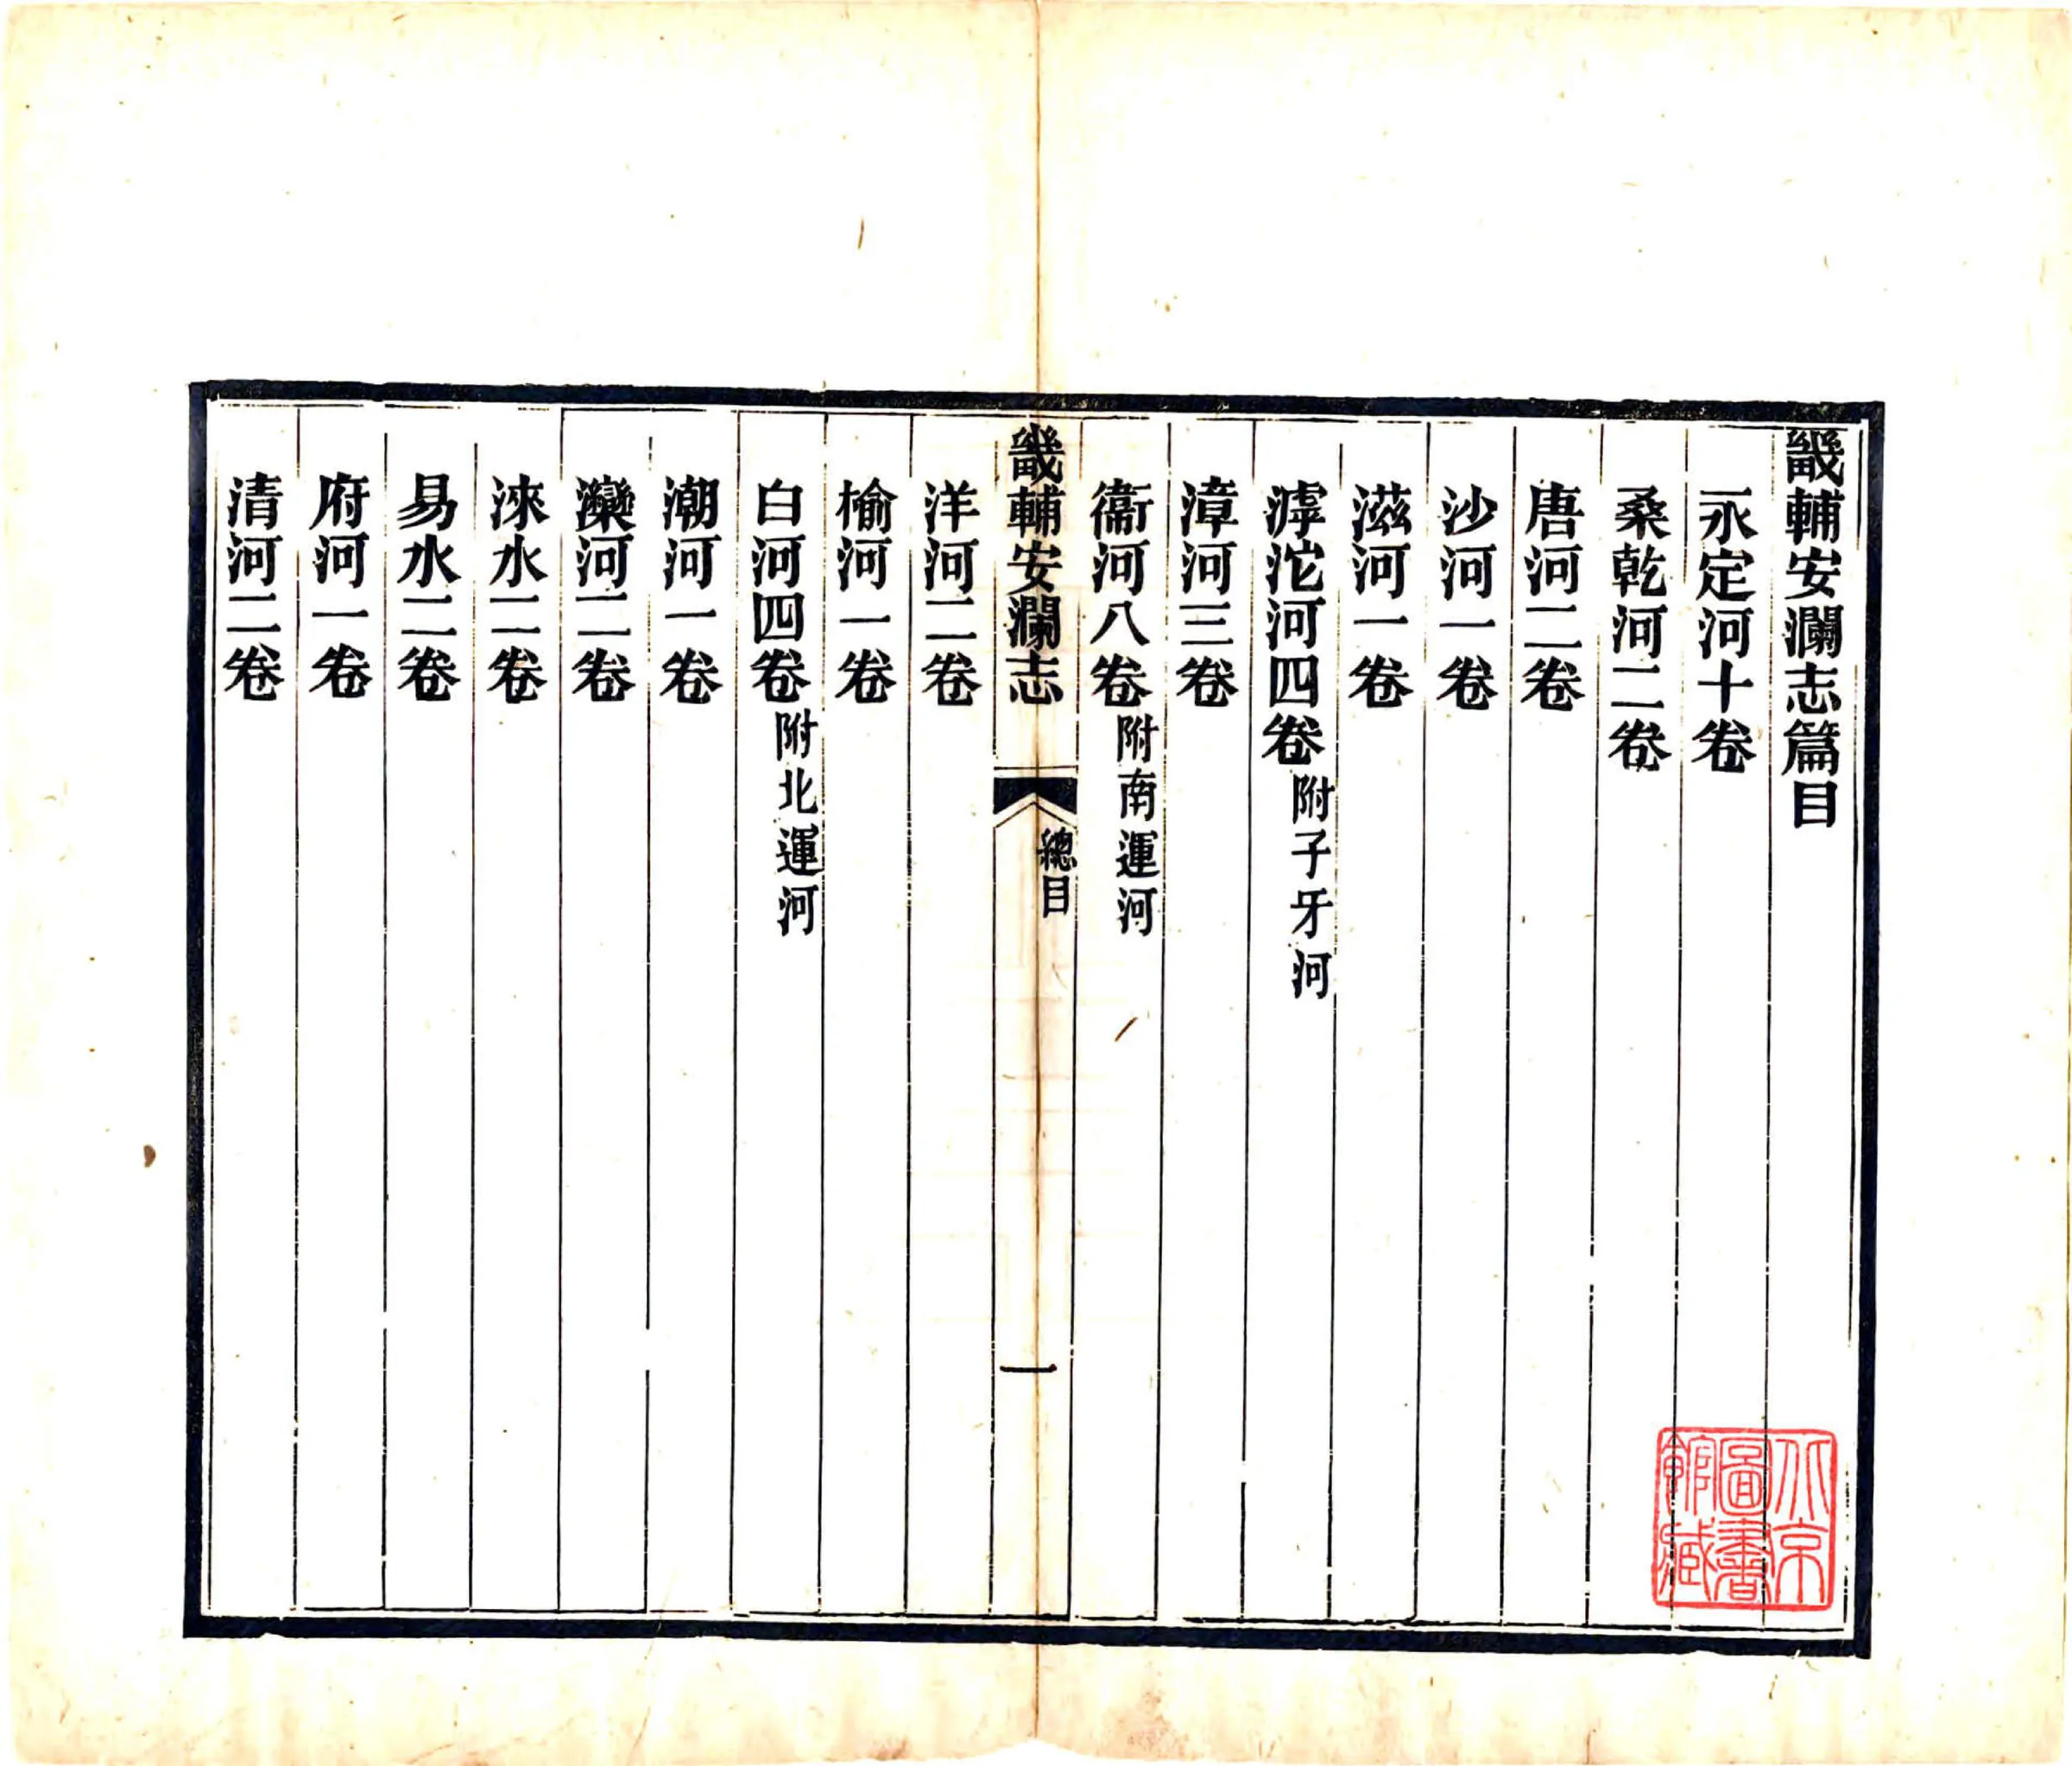 畿輔安瀾志篇目
永定河十卷
桑乾河二卷
唐河二卷
沙河一卷
滋河一卷
滹沱河四卷附子牙河
漳河三卷
衞河八卷附南運河
畿輔安瀾志
總目
一
洋河二卷
榆河一卷
白河四卷附北運河
潮河一卷
灤河二卷
淶水二卷
易水二卷
府河一卷
清河二卷
北京
圖書
館藏